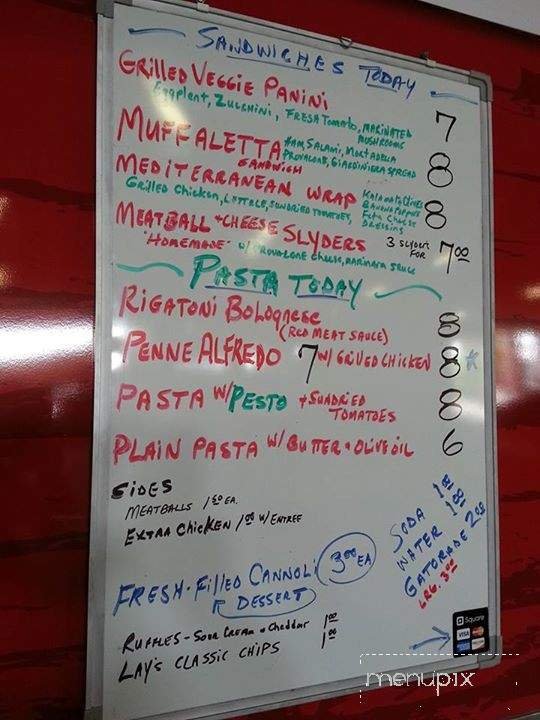 SANDWICHES TODAY
GRILLED VEGGIE PANINI 7
Eggplant, ZUCCHINI, FRESH TOMATO, MARINATED MUSHROOMS
MUFFALETTA SANDWICH 8
HAM, SALAMI, MORTADELLA
PROVALONE, GIARDINIERA SPREAD
MEDITERRANEAN WRAP 8
Grilled Chicken, LETTUCE, SUNDRIED TOMATOES,
KALAMATA OLIVES
BANANA PEPPERS
Feta Cheese
DRESSING
MEATBALL + CHEESE SLYDERS 3 SLYDERS FOR 7.00
"HOMEMADE" w/ PROVALONE CHEESE, MARINARA SAUCE
PASTA TODAY
RIGATONI BOLOGNESE 8
(RED MEAT SAUCE)
PENNE ALFREDO 7 w/ GRILLED CHICKEN 8
PASTA W/ PESTO + SUNDRIED TOMATOES 8
PLAIN PASTA W/ BUTTER + OLIVE OIL 6
SIDES
MEATBALLS 1.50 EA.
EXTRA CHICKEN 1.00 W/ ENTREE
SODA 1.00
WATER 1.00
GATORADE 2.00
LRG. 3.00
FRESH-FILLED CANNOLI 3.00 EA
DESSERT
RUFFLES - SOUR CREAM + Cheddar 1.00
LAY'S CLASSIC CHIPS 1.00
Square
VISA
menupix